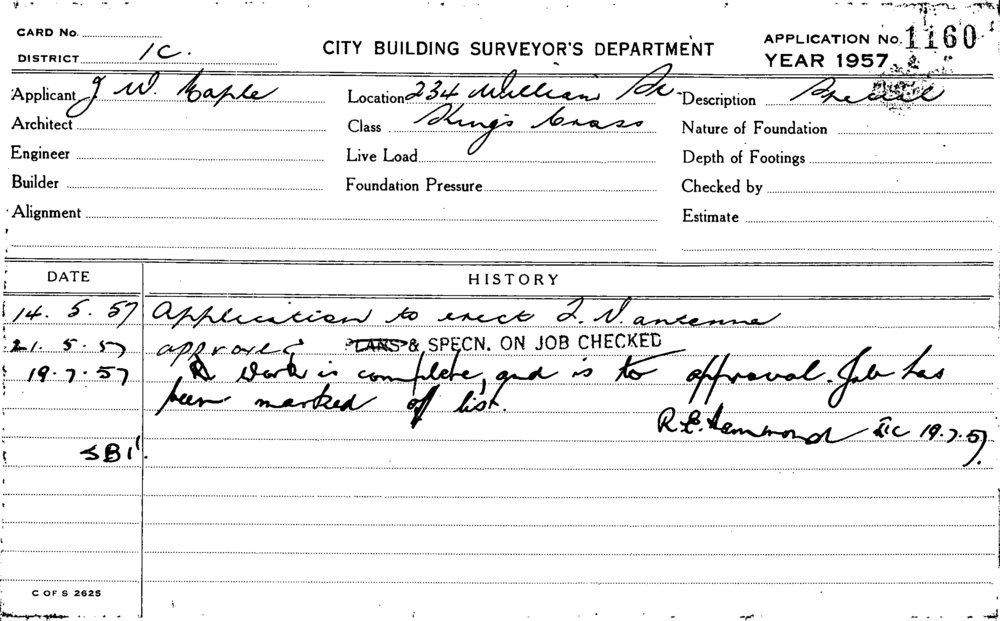 CARD No.
DISTRICT 1C.
CITY BUILDING SURVEYOR'S DEPARTMENT
APPLICATION No. 1160
YEAR 1957
Applicant J W. Maple Location 234 William St. Description
Architect Class Kings Cross Nature of Foundation
Engineer Live Load Depth of Footings
Builder Foundation Pressure Checked by
Alignment Estimate
DATE HISTORY
14. 5. 57 Application to erect T.V. antenna
21. 5. 57 approved PLANS & SPECN. ON JOB CHECKED
19.7.57 Work is complete, and is to approval. Job has
been marked of list.
R.E. Hammond IIC 19.7.57.
SBI.
C OF S 2625